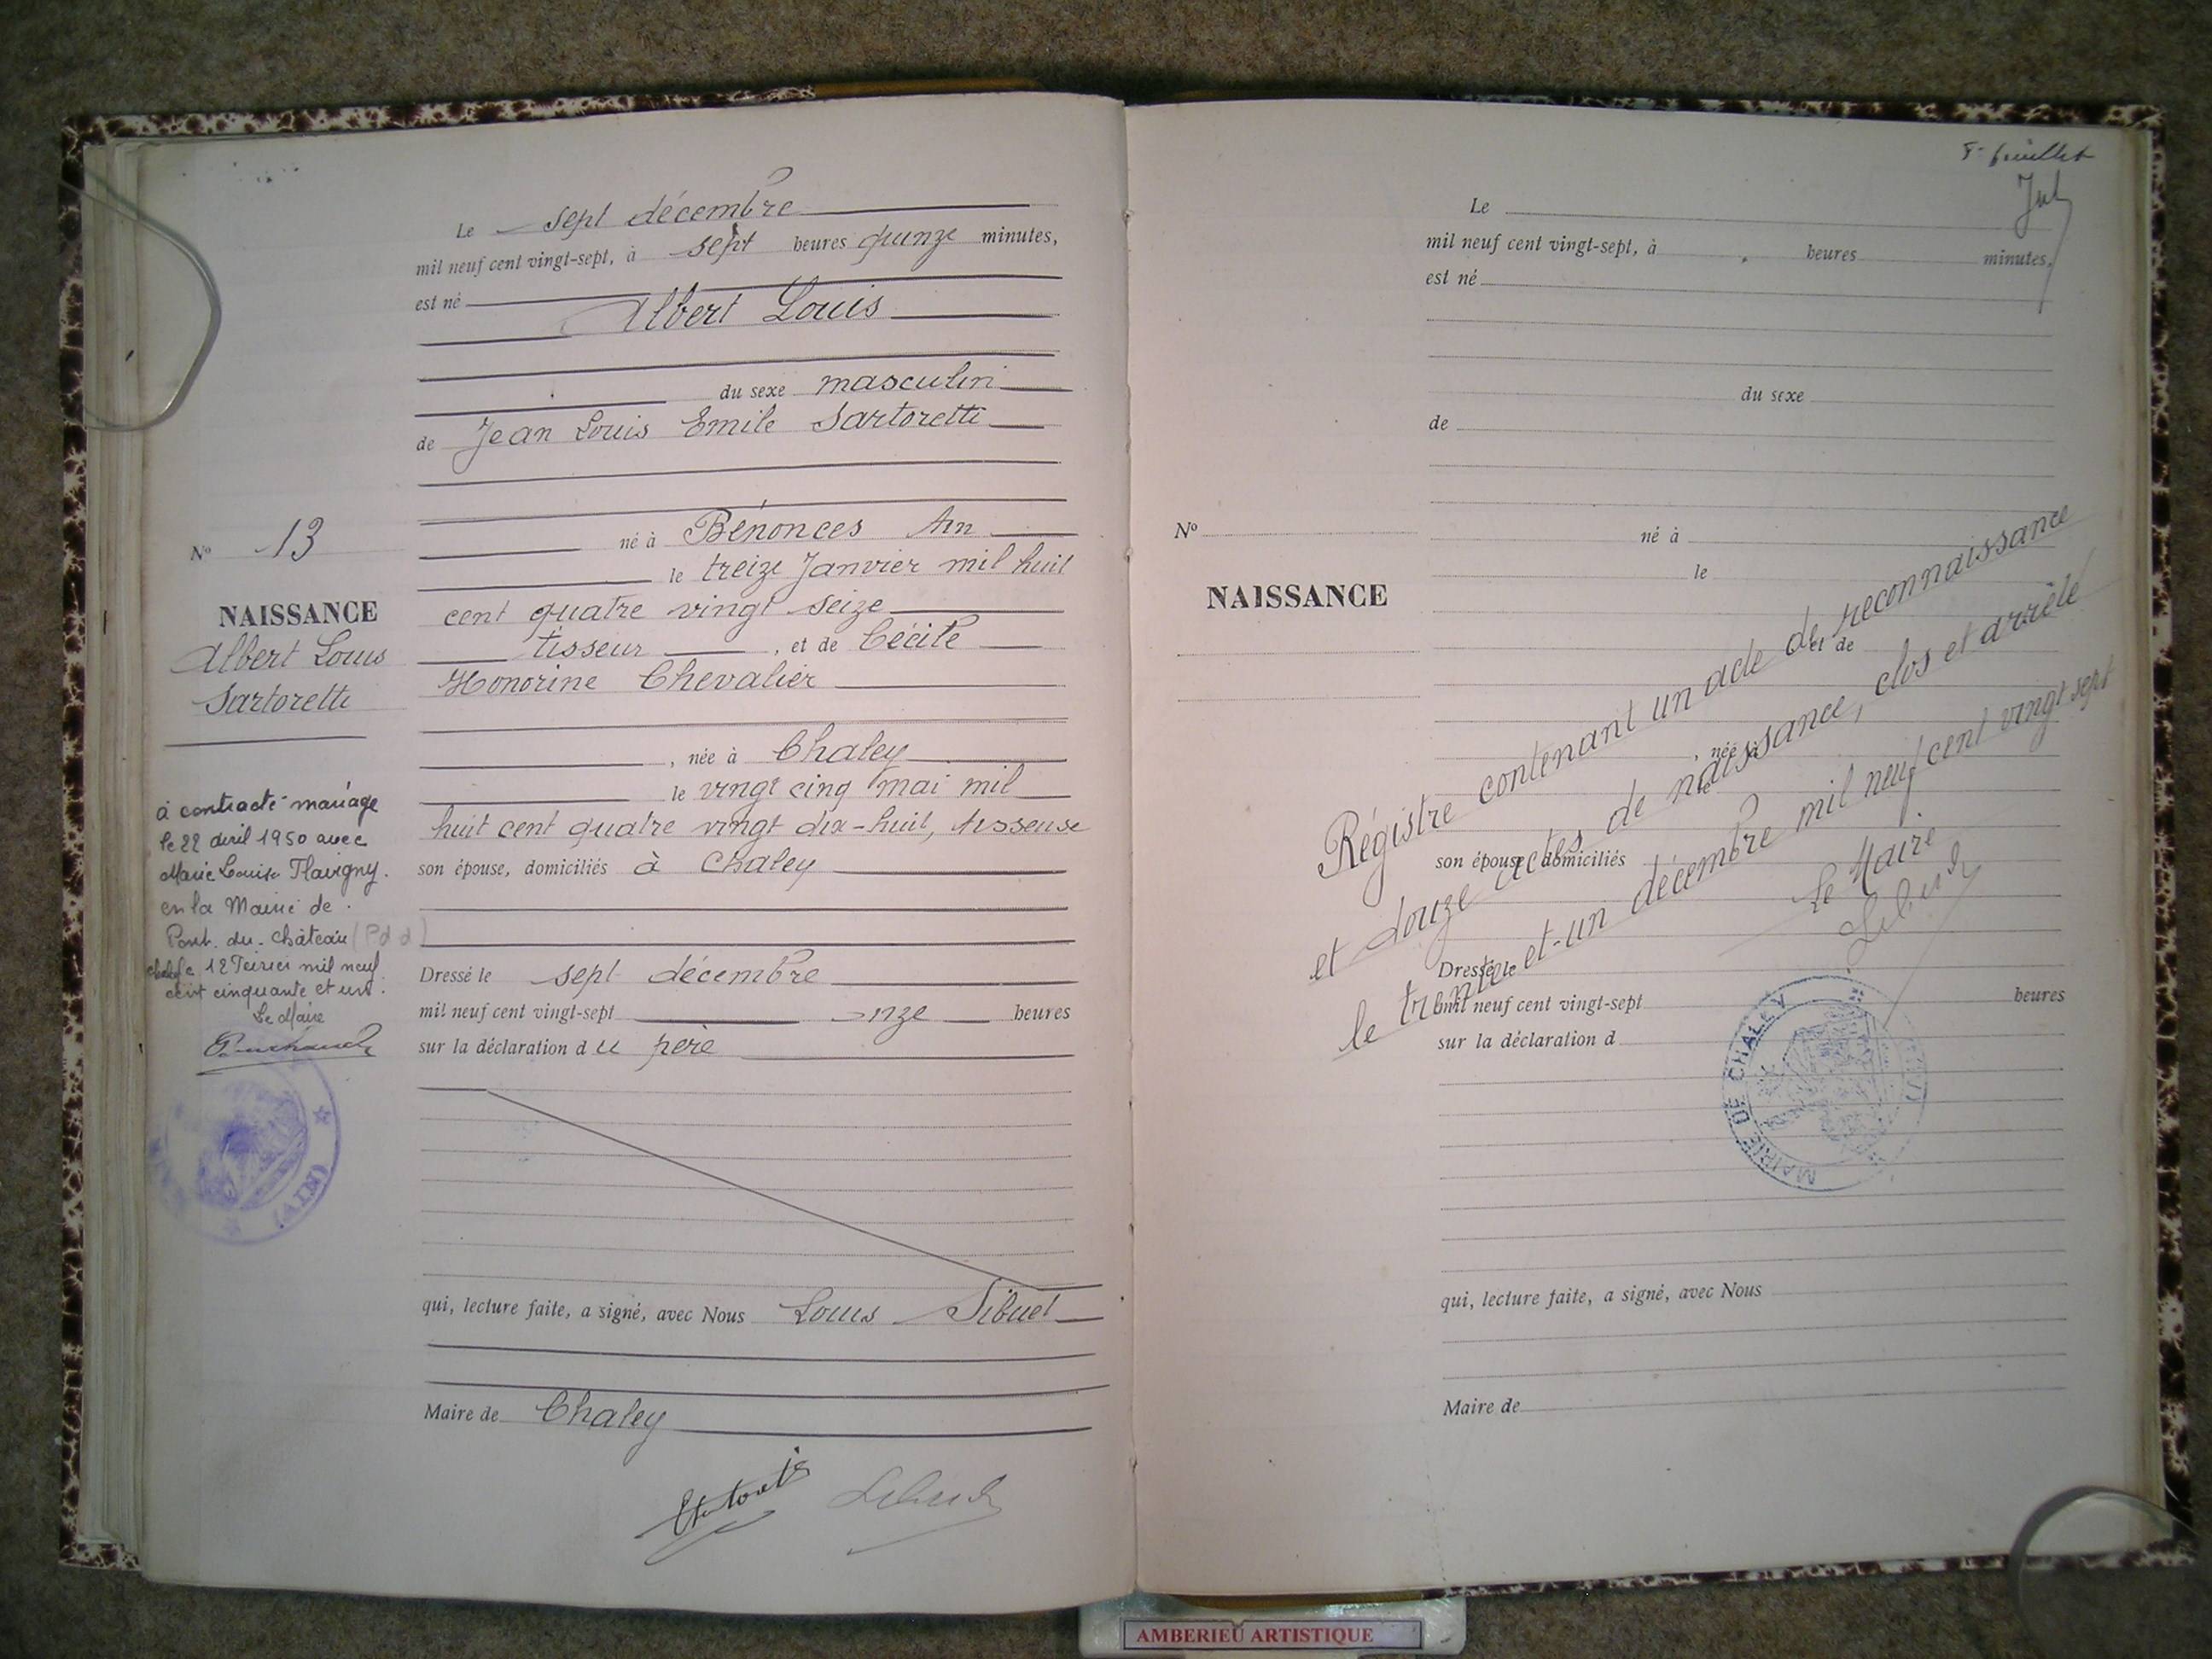 Le sept décembre
mil neuf cent vingt-sept, à sept heures quinze minutes,
est né
Albert Louis
du sexe masculin
de Jean Louis Emile Sartoretti
né à Bénonces Ain
le treize Janvier mil huit
cent quatre vingt seize
tisseur, et de Cécile
Honorine Chevalier
, née à Chaley
le vingt cinq mai mil
huit cent quatre vingt dix-huit, tisseuse
son épouse, domiciliés à Chaley
Dressé le sept décembre
mil neuf cent vingt-sept onze heures
sur la déclaration du père
qui, lecture faite, a signé, avec Nous Louis Sibuet
Maire de Chaley
N° 13
NAISSANCE
Albert Louis
Sartoretti
à contracté mariage
le 22 avril 1950 avec
Marie Louise Flavigny.
en la Mairie de
Pont-du-Château (P d d)
le 12 mil neuf
cent cinquante et un.
Le Maire
(AIN)
feuillet
Le
mil neuf cent vingt-sept, à heures minutes,
est né
du sexe
de
N°
né à
le
NAISSANCE
et de
, née à
le
son épouse, domiciliés
Dressé le
mil neuf cent vingt-sept heures
sur la déclaration d
qui, lecture faite, a signé, avec Nous
Maire de
Régistre contenant un acte de reconnaissance
et douze actes de naissance, clos et arrêté
le trente et-un décembre mil neuf cent vingt sept
Le Maire
MAIRIE DE CHALEY
AMBERIEU ARTISTIQUE